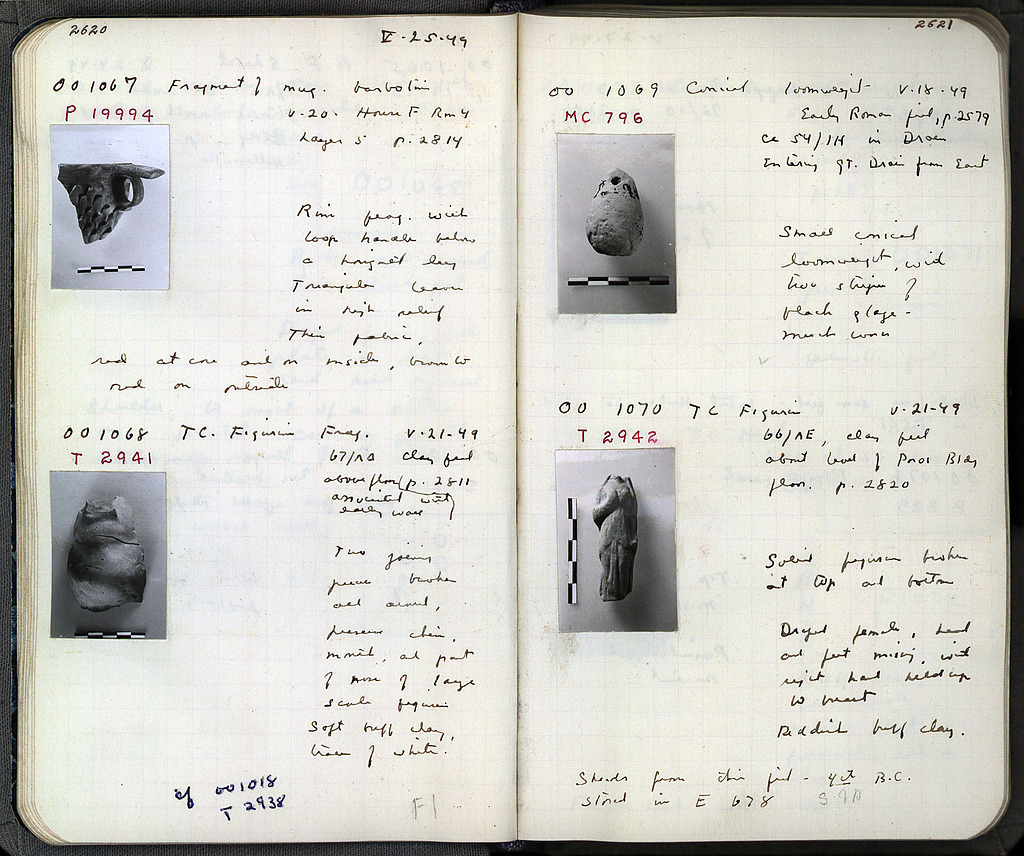 2620
V-25-49
OO 1067 Fragment of mug. barbotine
P 19994
V-20. House F Rm 4
Layer 5 p. 2814
Rim frag. with
loop handle below
a
Triangular leaves
in high relief
Thin fabric,
red at core and on inside, brown to
red on outside
OO 1068 TC. Figurine Frag. V-21-49
T 2941
67/ clay fill
above floor, p. 2811
associated with
early ware
Two joining
pieces broken
all around,
preserve chin,
mouth, and part
of nose of large
scale figurine
Soft buff clay,
traces of white.
cf OO 1018
T 2938
F1
2621
OO 1069 Conical loomweight V-18-49
MC 796
Early Roman fill, p. 2579
ca 54/ΙΗ in Drain
Entering Gt. Drain from East
Small conical
loomweight, with
two stripes of
black glaze -
much worn
OO 1070 TC Figurine V-21-49
T 2942
66/ΛΕ, clay fill
about level of Poros Bldg
floor. p. 2820
Solid figurine broken
at top and bottom
Draped female, head
and feet missing, with
right hand held up
to breast
Reddish buff clay.
Sherds from this fill - 4th B.C.
stored in E 678